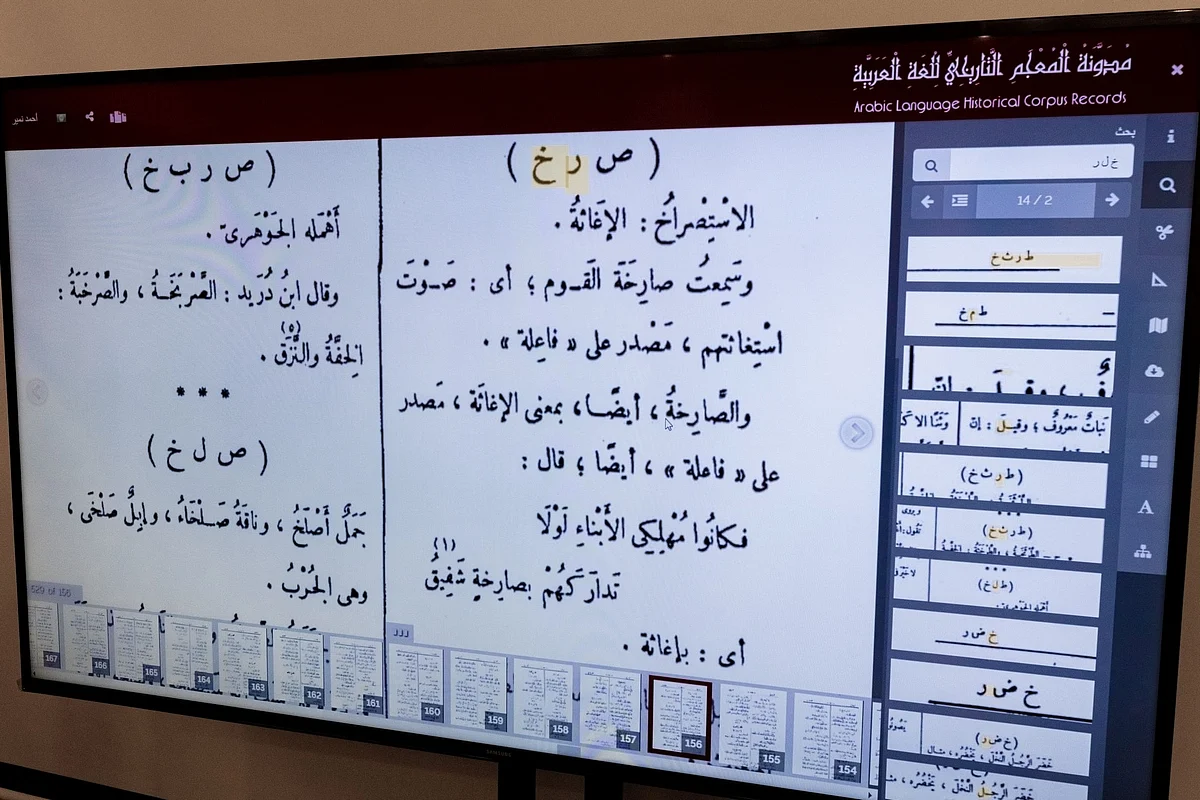 مُدَوَّنَةُ الْمُعْجَمِ التَّارِيخِيِّ لِلُّغَةِ الْعَرَبِيَّةِ
Arabic Language Historical Corpus Records
أحمد نمير
بحث
خ ل ر
14 / 2
( ص ر خ )
الاسْتِصْراخُ : الإغاثةُ .
وسَمِعتُ صارِخَةَ القَـوم ؛ أى : صَـوْتَ
اسْتِغاثتهم ، مَصْدر على « فاعِلة » .
والصَّارِخةُ ، أيضًـا ، بمعنى الإغاثَة ، مَصدر
على « فاعلة » ، أيضًا ؛ قال :
فكانُوا مُهْلِكِى الأَبْناءِ لَوْلَا
تَدارَكَهُمْ بصارِخةٍ شَفِيقُ (١)
أى : بإغاثة .
( ص ر ب خ )
أَهْمَله الجَوْهَرىّ .
وقال ابنُ دُرَيد : الصَّرْبَخَـةُ ، والصَّرْخَبَةُ :
الخِفَّةُ والنَّزَق (٥) .
* * *
( ص ل خ )
جَمَلٌ أَصْلَخُ ، وناقَةٌ صَـلْخَاءُ ، وإبِلٌ صَلْخَى ،
وهى الجُرْبُ .
ط ر ث خ
ط م خ
نَباتٌ مَعْروفٌ ؛ وقيـلَ : إن
(ط ر ث خ)
(ط ر ث خ)
(ط ل خ)
خ ض ر
خ ض ر
(خ ض ر)
خَضَر الرَّجُلُ النَّخْلَ ، يَخْضُره ،
529 of 156
167
166
165
164
163
162
161
160
159
158
157
156
155
154
SAMSUNG